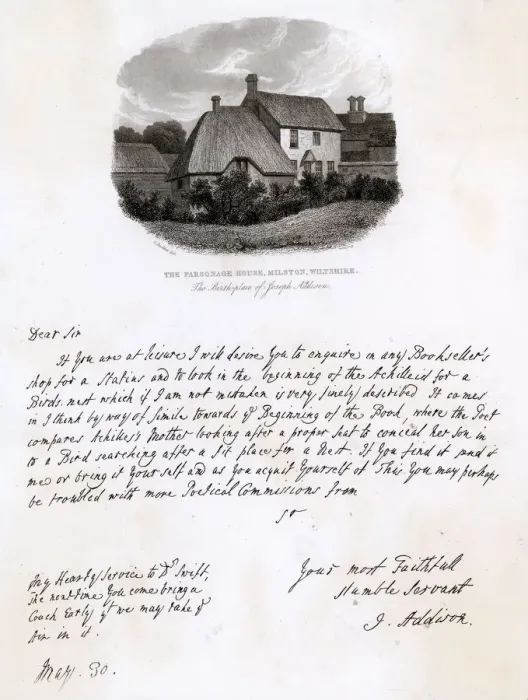 THE PARSONAGE HOUSE, MILSTON, WILTSHIRE.
The Birthplace of Joseph Addison.
Dear Sir
If You are at leisure I will desire You to enquire in any Bookseller's
shop for a Statius and to look in the beginning of the Achilleid for a
Birds-nest which if I am not mistaken is very finely described It comes
in I think by way of Simile towards ye Beginning of the Book, where the Poet
compares Achilles's Mother looking after a proper seat to conceal her Son in
to a Bird searching after a fit place for a Nest. If You find it send it
me or bring it Your self and as You acquit Yourself of This You may perhaps
be troubled with more Poetical Commissions from
Sr
Your most Faithfull
Humble Servant
J. Addison.
My Hearty Service to Dr Swift,
The next time You come bring a
Coach Early yt we may take ye
Air in it.
May. 30.